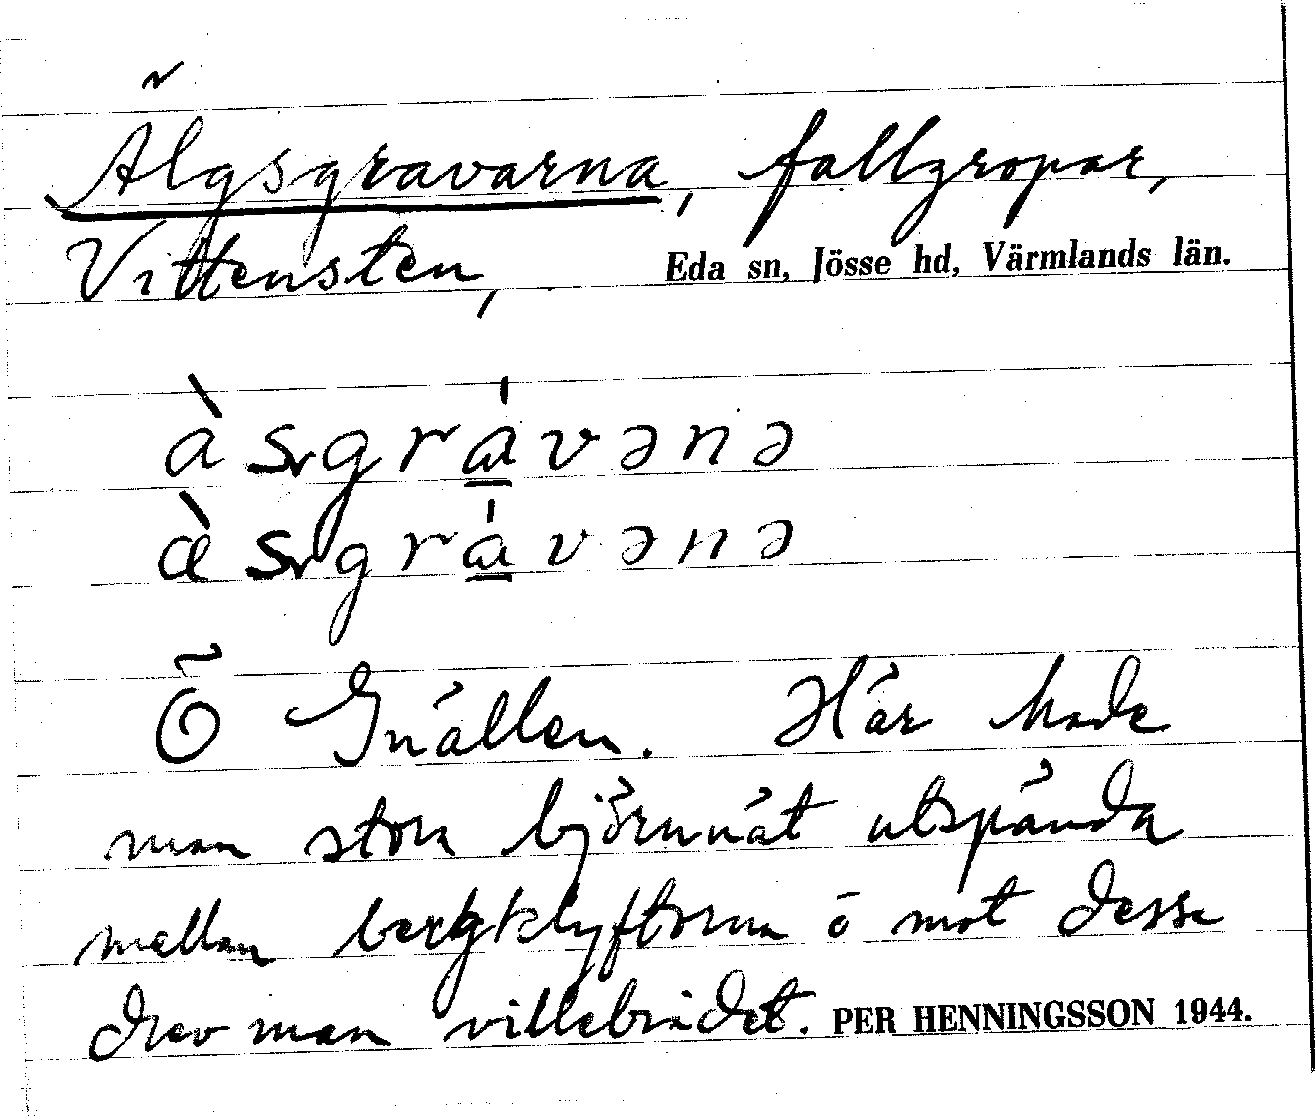 Älgsgravarna, fallgropar,
Vittensten, Eda sn, Jösse hd, Värmlands län.
àsgrávənə
æ̀sgrávənə
Ö Gnällen. Här hade
man stora björnnät utspända
mellan bergklyftorna o mot dessa
drev man villebrådet. PER HENNINGSSON 1944.